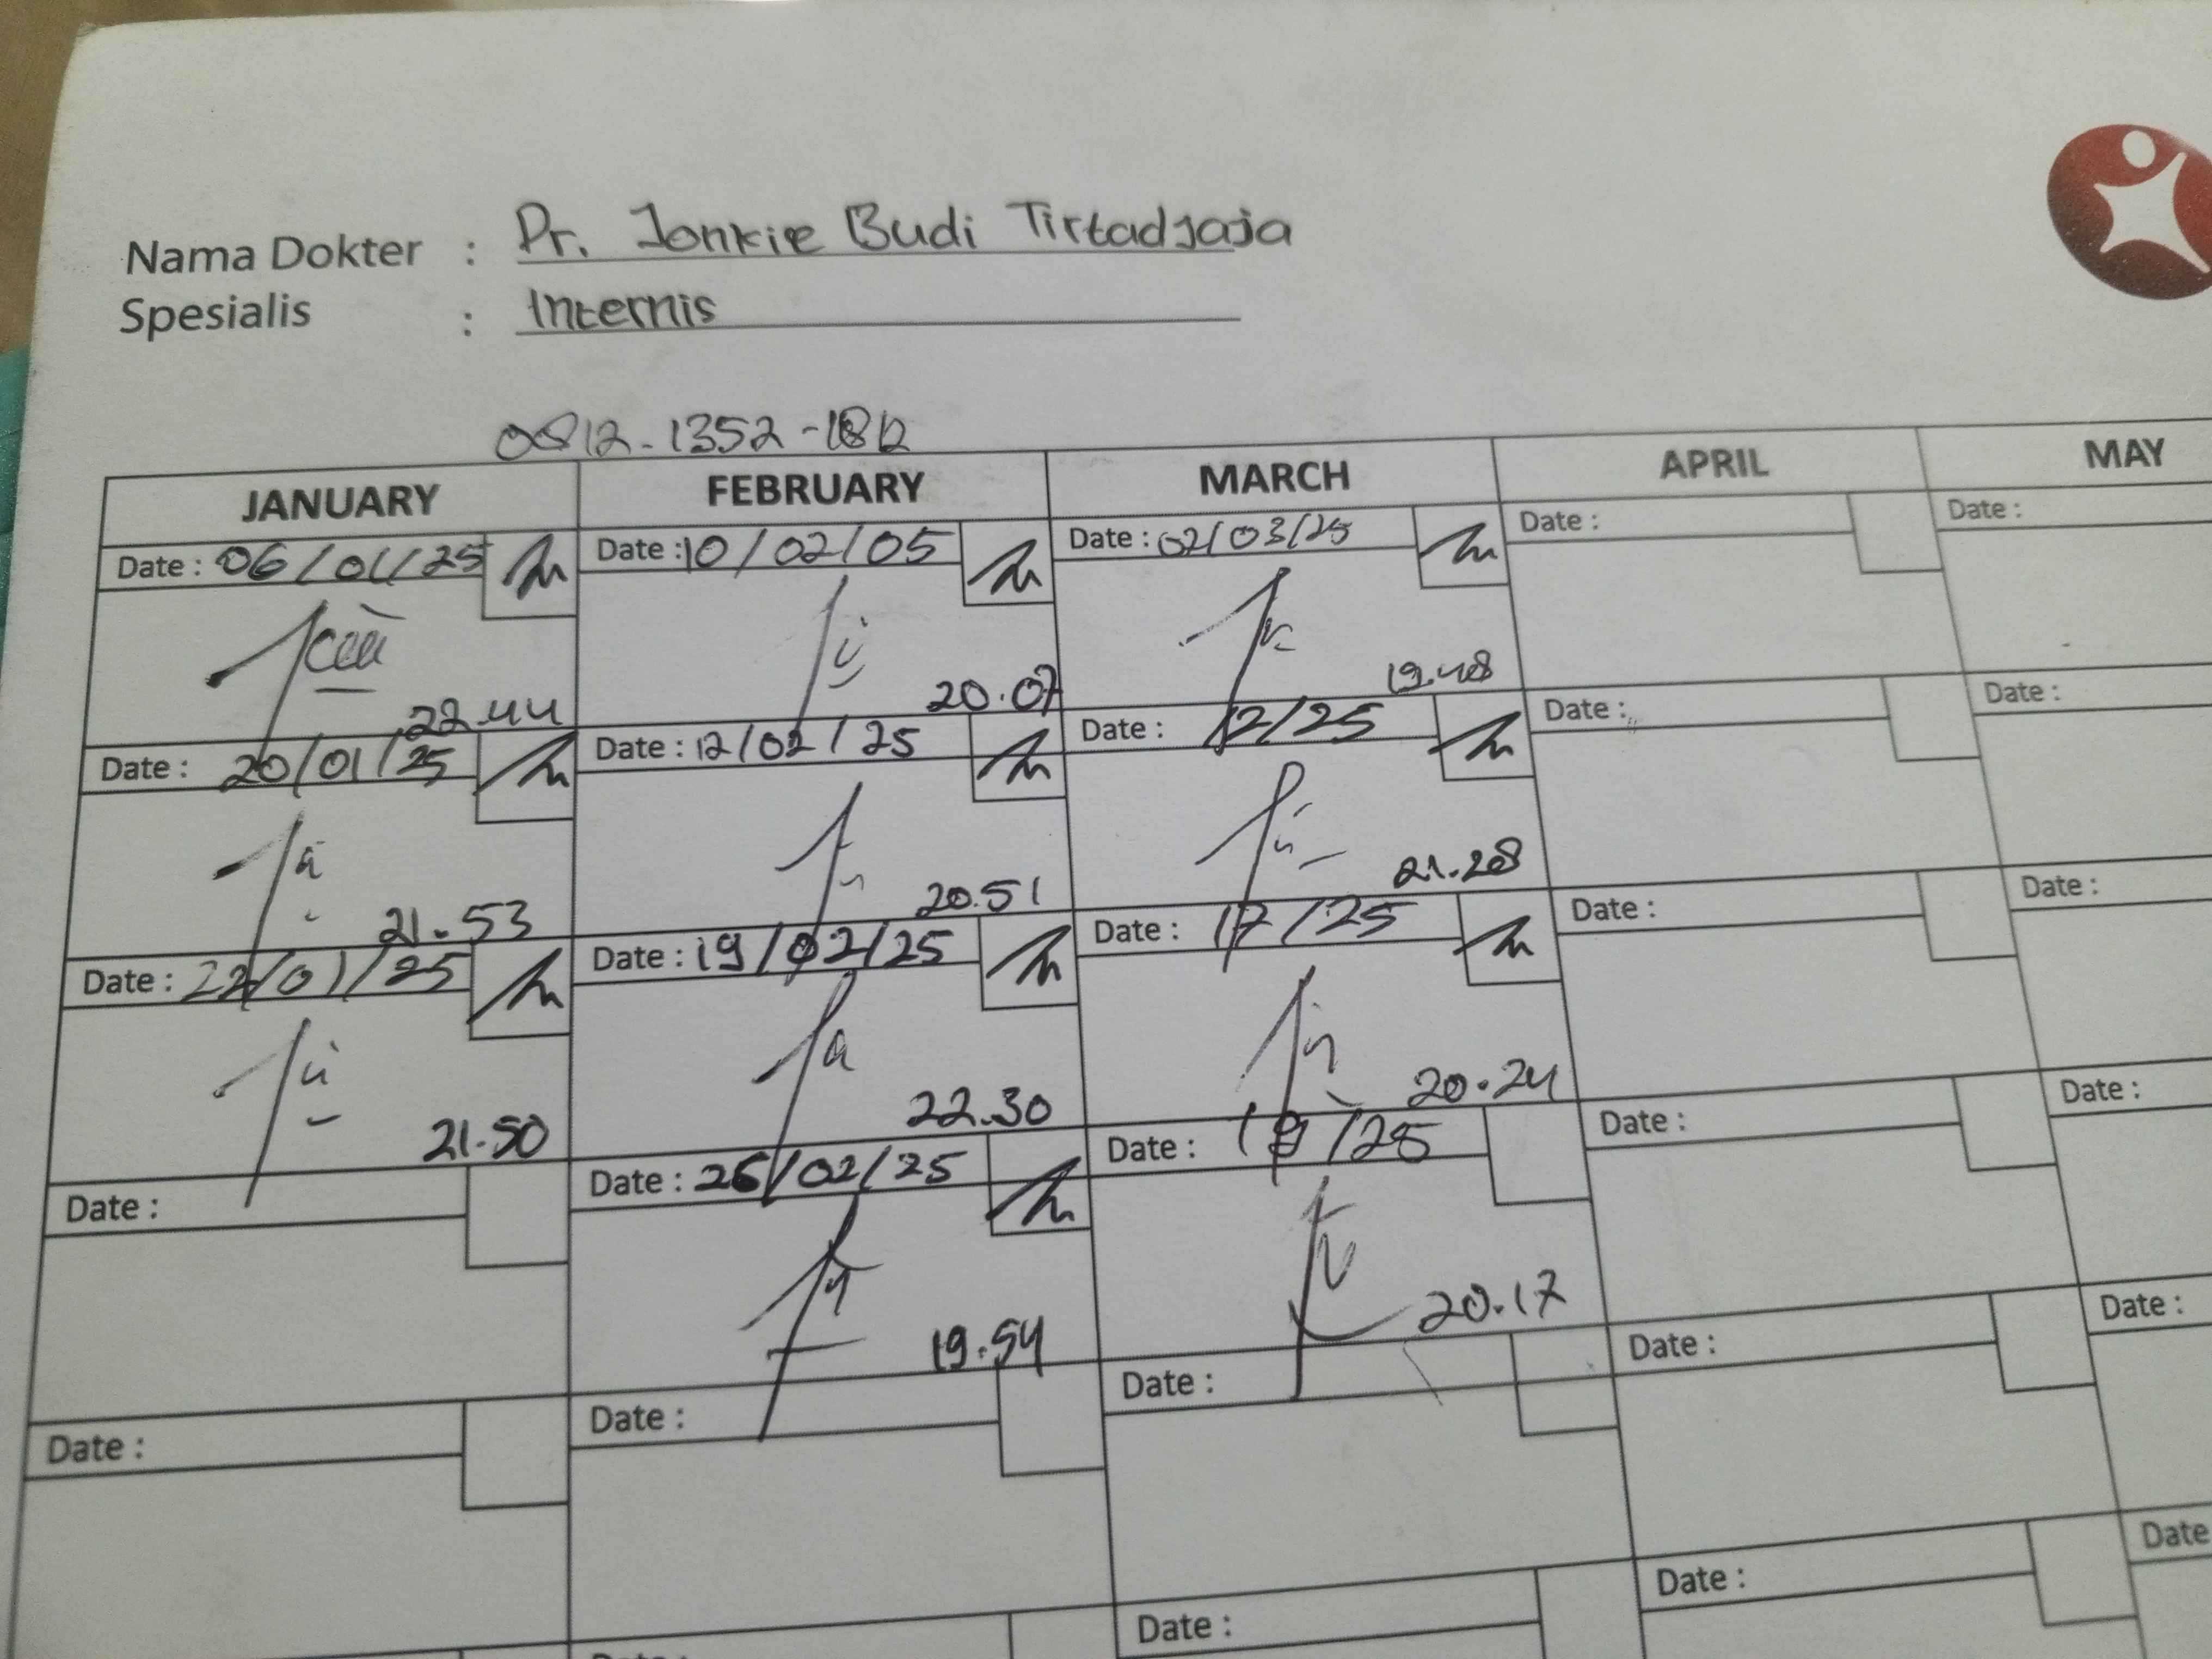 Nama Dokter : Dr. Jonkie Budi Tirtadjaja
Spesialis : Internis
0812-1352-1812
JANUARY FEBRUARY MARCH APRIL MAY
Date : 06/01/25 Date : 10/02/05 Date : 02/03/25 Date : Date :
22.44 20.07 19.48
Date : 20/01/25 Date : 12/02/25 Date : 12/25 Date : Date :
21.53 20.51 21.28
Date : 22/01/25 Date : 19/02/25 Date : 17/25 Date : Date :
21.50 22.30 20.24
Date : Date : 26/02/25 Date : 19/25 Date : Date :
19.54 20.17
Date : Date : Date : Date : Date :
Date : Date : Date